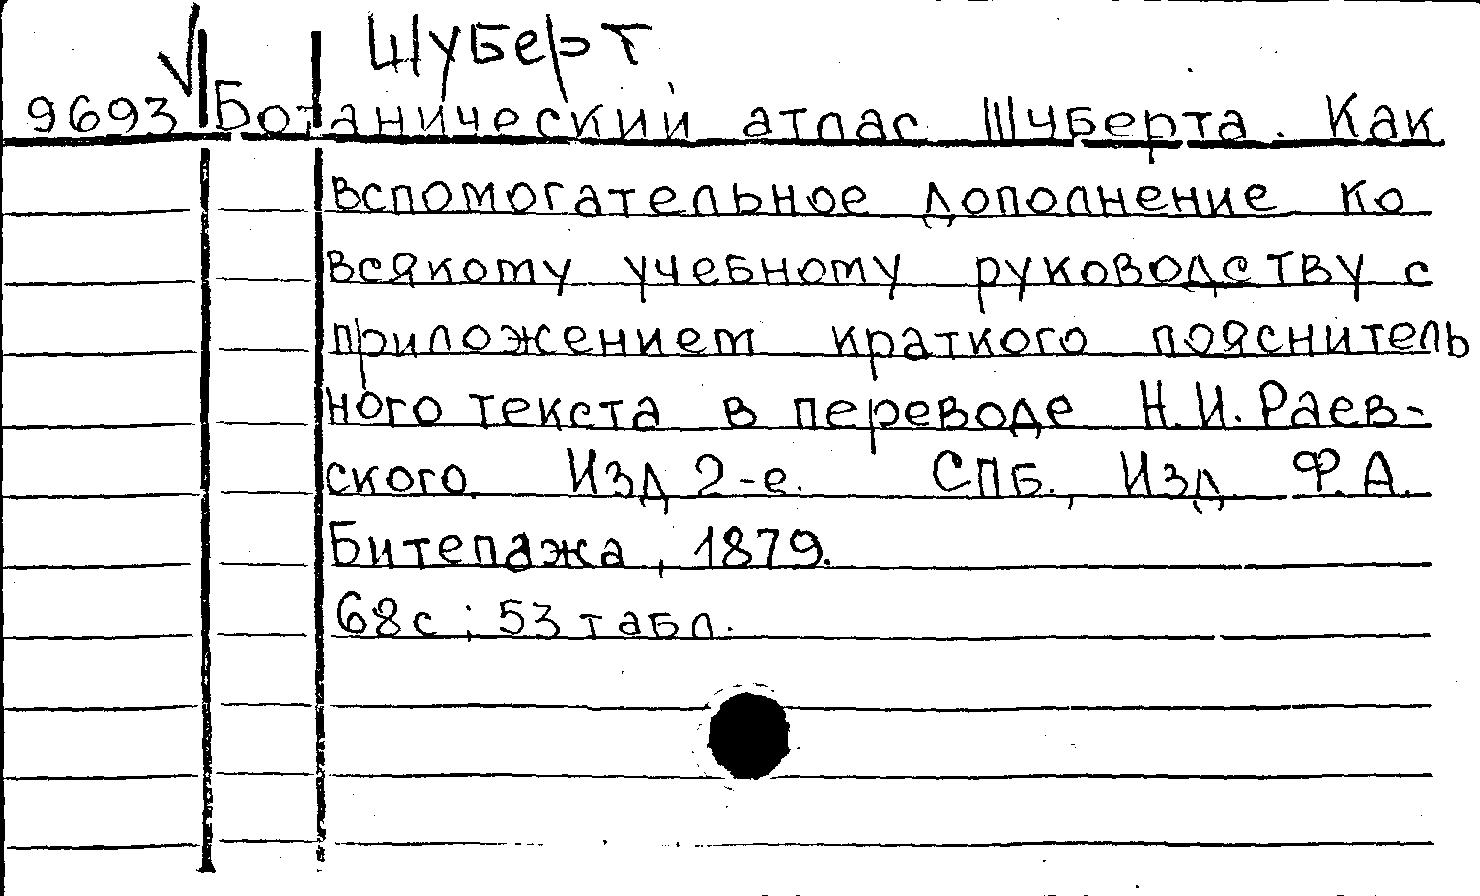 Шуберт
9693 Ботанический атлас Шуберта. Как
вспомогательное дополнение ко
всякому учебному руководству с
приложением краткого пояснитель
ного текста в переводе Н.И. Раев-
ского. Изд 2-е. СПБ., Изд. Ф.А.
Битепажа, 1879.
68с ; 53 табл.